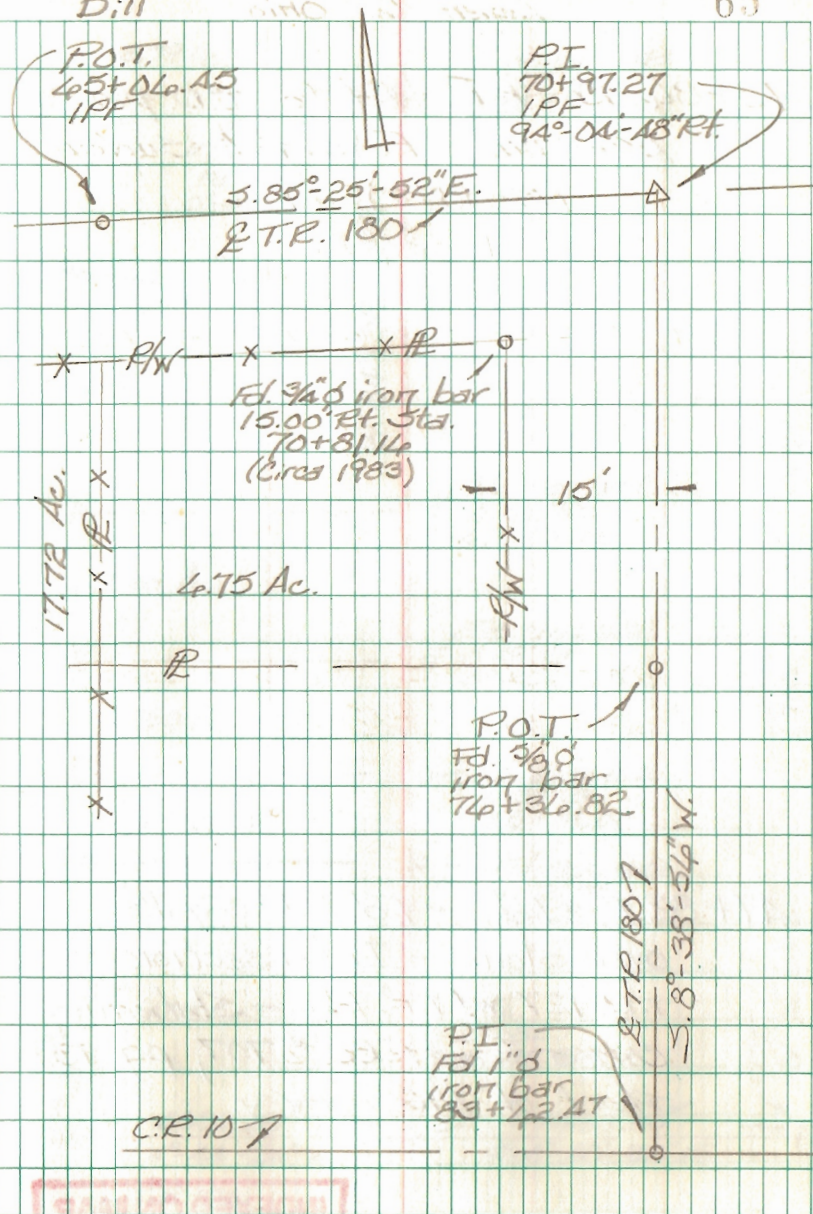 P.O.T.
65+06.45
IPF
P.I.
70+97.27
IPF
94°-04'-48" Rt.
S.85°-25'-52"E.
℄ T.R. 180
R/W
℄
Fd. 3/4"ϕ iron bar
15.00' Rt. Sta.
70+81.16
(Circa 1983)
15'
17.72 Ac.
℄
6.75 Ac.
R/W
℄
P.O.T.
Fd. 5/8"ϕ
iron bar
76+36.82
℄ T.R. 180
S.8°-38'-56"W.
P.I.
Fd 1"ϕ
iron bar
83+62.47
C.R. 10